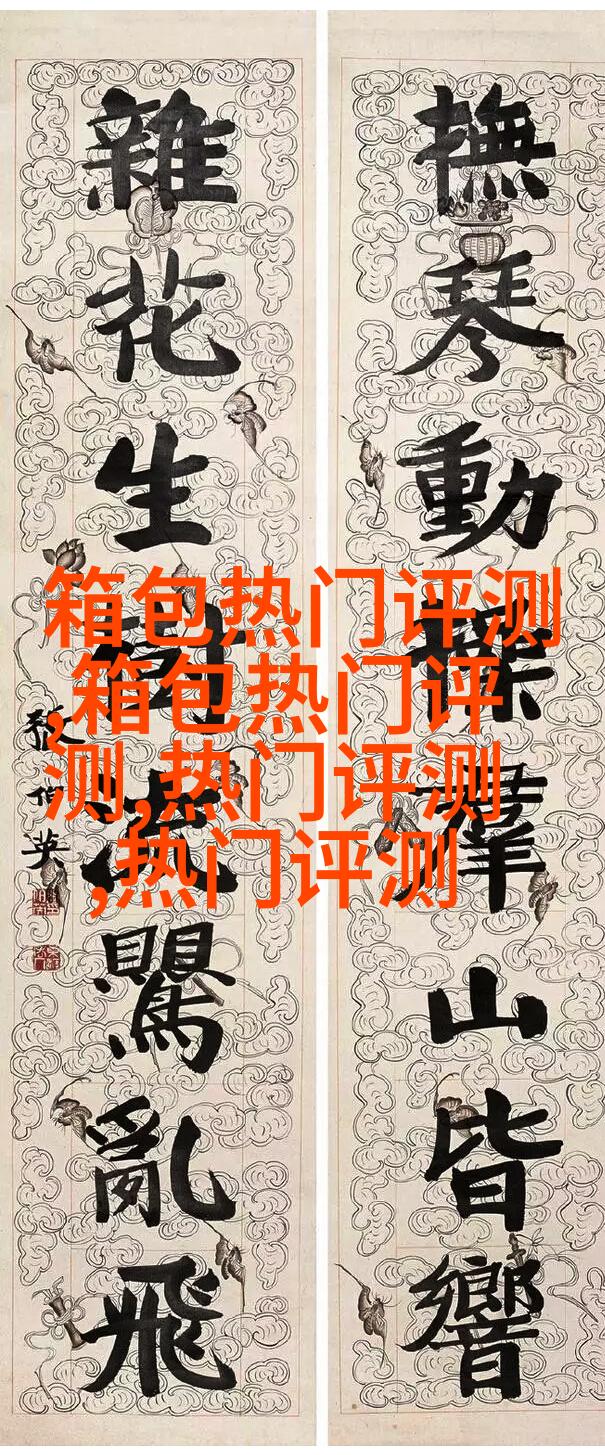 撫琴動操羣山皆響
雜花生樹流鸎亂飛
張伯英
箱包热门评测
,箱包热门评
测,热门评测
,热门评测